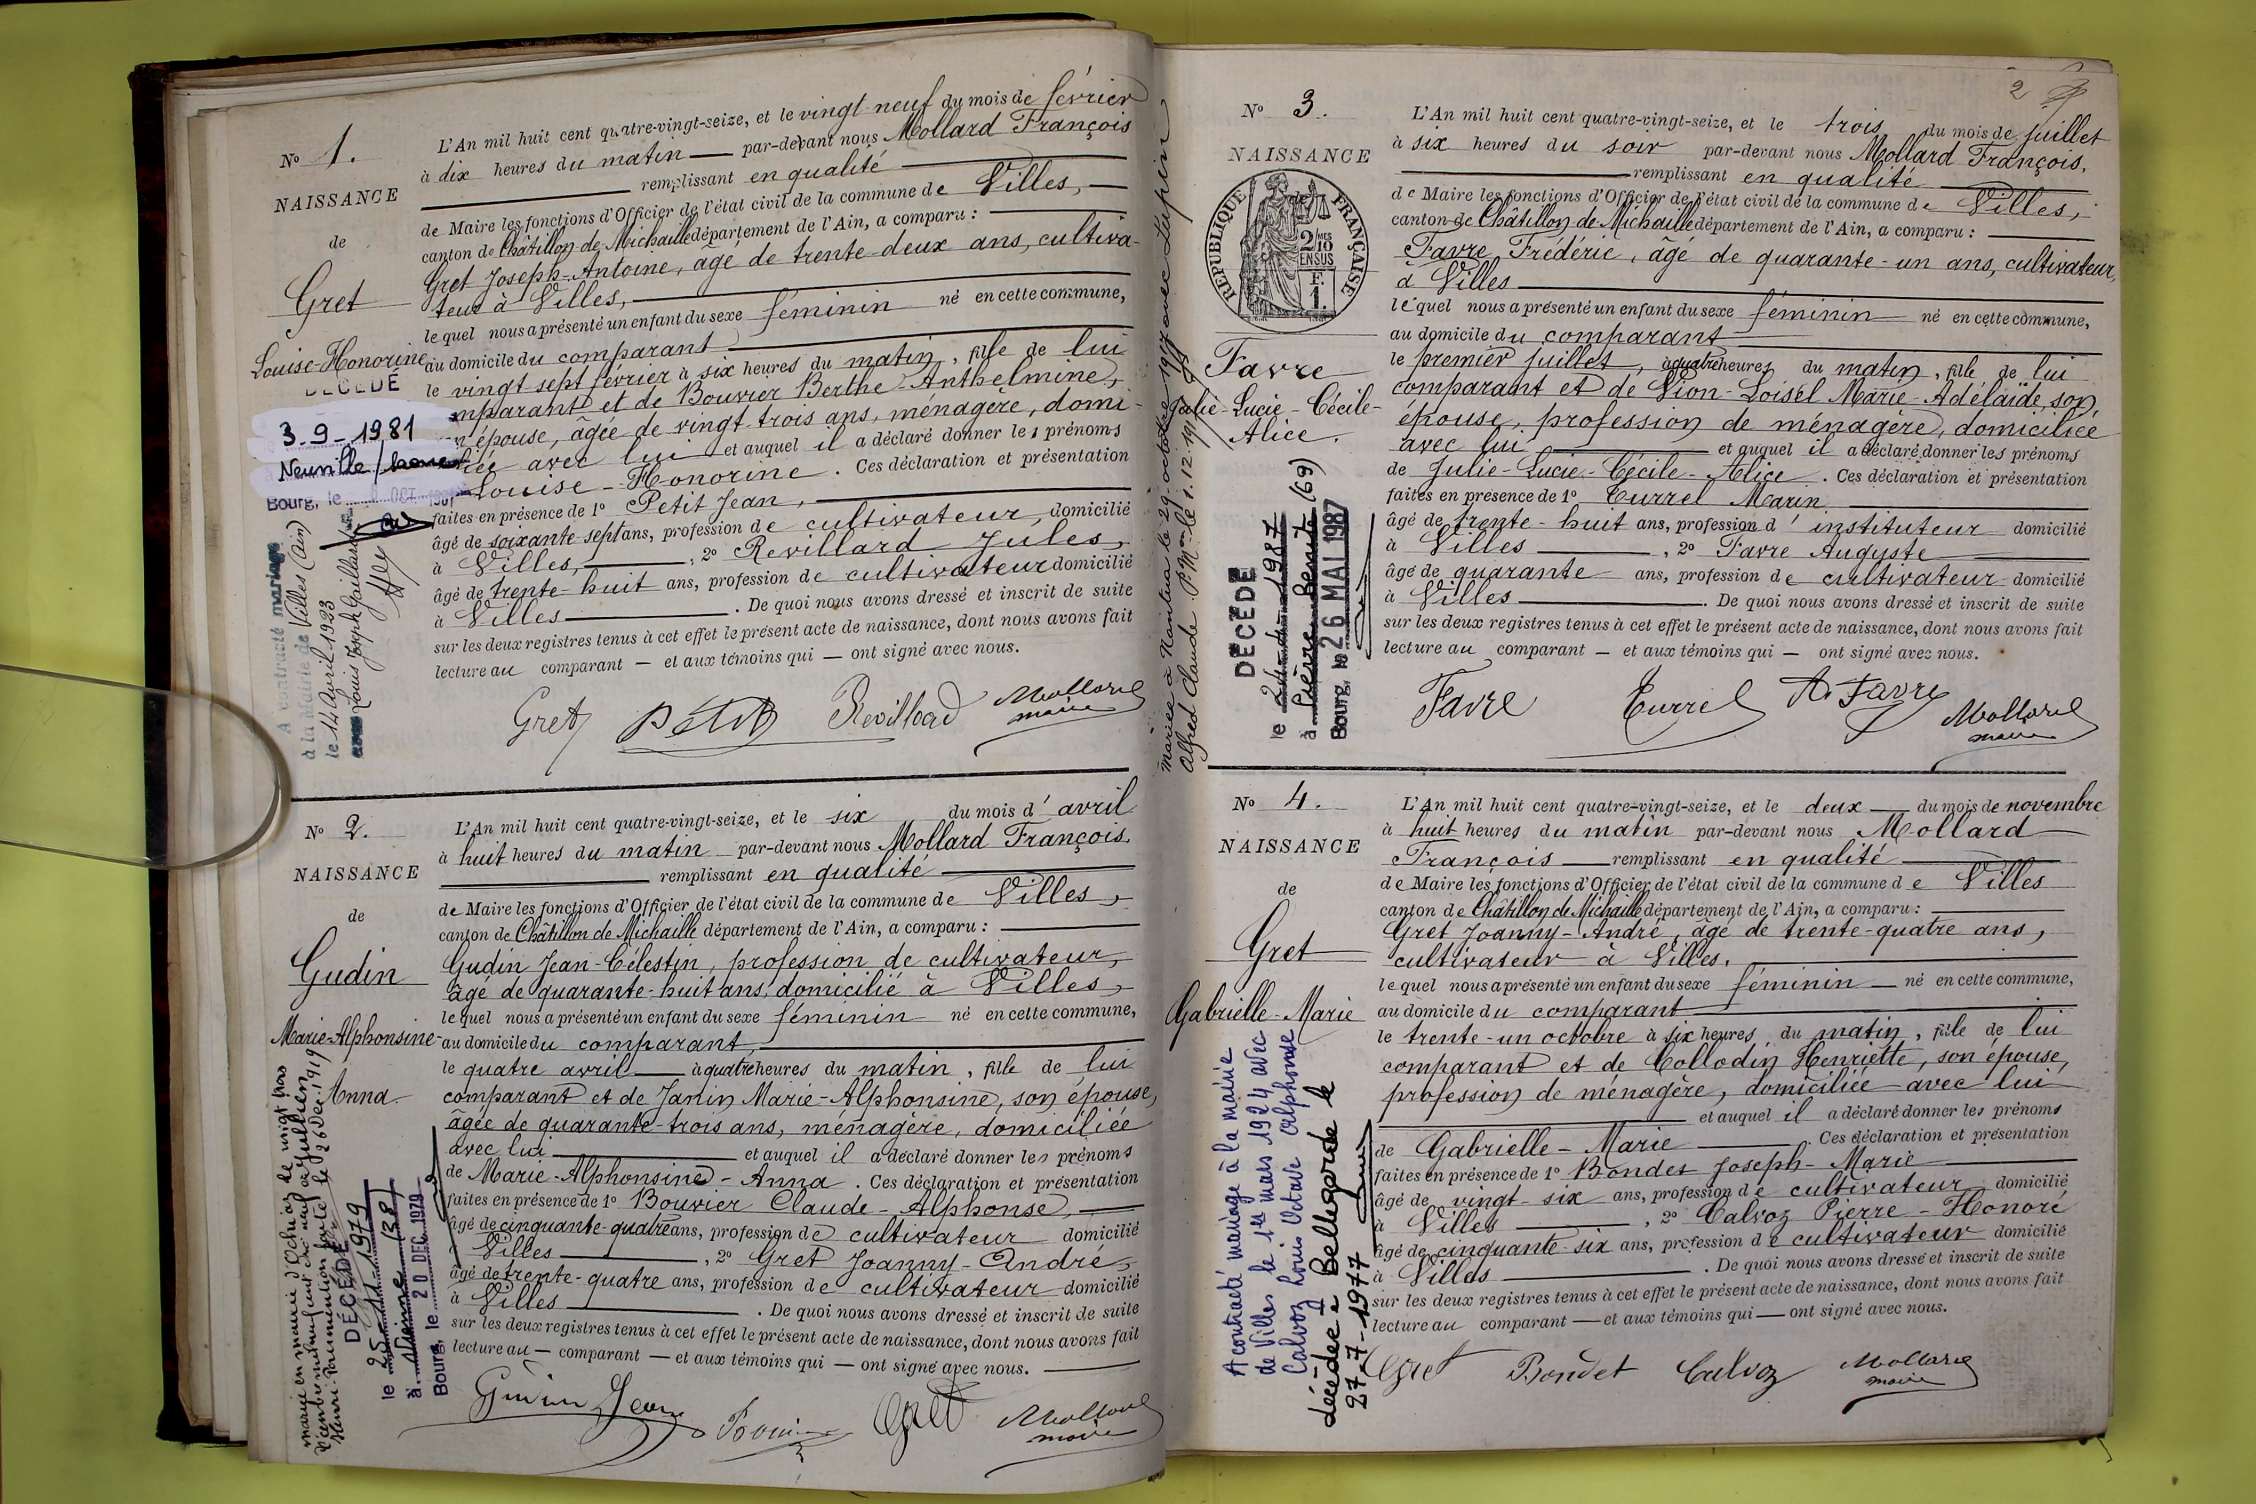 N° 1.
NAISSANCE
de
Gret
Louise-Honorine
DÉCÉDÉ
3-9-1981
Neuville/
Bourg, le OCT. 1981
A contracté mariage
à la Mairie de Villes (Ain)
le 14 Avril 1923
avec Louis Joseph Gaillard
L'An mil huit cent quatre-vingt-seize, et le vingt-neuf du mois de février
à dix heures du matin — par-devant nous Mollard François
remplissant en qualité
de Maire les fonctions d'Officier de l'état civil de la commune de Villes,
canton de Châtillon de Michaille département de l'Ain, a comparu :
Gret Joseph-Antoine, âgé de trente-deux ans, cultiva-
teur à Villes,
lequel nous a présenté un enfant du sexe féminin né en cette commune,
au domicile du comparant
le vingt sept février à six heures du matin, fille de lui
mparant et de Bouvier Berthe-Anthelmine,
n épouse, âgée de vingt-trois ans, ménagère, domi-
liée avec lui et auquel il a déclaré donner les prénoms
Louise-Honorine. Ces déclaration et présentation
faites en présence de 1° Petit Jean,
âgé de soixante-sept ans, profession de cultivateur, domicilié
à Villes, 2° Revillard Jules,
âgé de trente-huit ans, profession de cultivateur domicilié
à Villes. De quoi nous avons dressé et inscrit de suite
sur les deux registres tenus à cet effet le présent acte de naissance, dont nous avons fait
lecture au comparant — et aux témoins qui — ont signé avec nous.
Gret Petit Revillard Mollard
maire
N° 2.
NAISSANCE
de
Gudin
Marie-Alphonsine-
Anna.
mariée en mairie d'Ochiaz le vingt trois
Décembre mil neuf cent dix neuf avec Jullien
Henri. mention portée le 26 Dec. 1919
DÉCÉDÉ
le 25-11-1979
à Vienne (38)
Bourg, le 20 DEC. 1979
L'An mil huit cent quatre-vingt-seize, et le six du mois d'avril
à huit heures du matin par-devant nous Mollard François.
remplissant en qualité
de Maire les fonctions d'Officier de l'état civil de la commune de Villes,
canton de Châtillon de Michaille département de l'Ain, a comparu :
Gudin Jean-Célestin, profession de cultivateur,
âgé de quarante-huit ans, domicilié à Villes,
lequel nous a présenté un enfant du sexe féminin né en cette commune,
au domicile du comparant,
le quatre avril à quatre heures du matin, fille de lui
comparant et de Janin Marie-Alphonsine, son épouse,
âgée de quarante-trois ans, ménagère, domiciliée
avec lui et auquel il a déclaré donner les prénoms
de Marie-Alphonsine-Anna. Ces déclaration et présentation
faites en présence de 1° Bouvier Claude-Alphonse,
âgé de cinquante-quatre ans, profession de cultivateur domicilié
à Villes, 2° Gret Joanny-André,
âgé de trente-quatre ans, profession de cultivateur domicilié
à Villes. De quoi nous avons dressé et inscrit de suite
sur les deux registres tenus à cet effet le présent acte de naissance, dont nous avons fait
lecture au — comparant — et aux témoins qui — ont signé avec nous.
Gudin Jean Bouvier Gret Mollard
maire
2
N° 3.
NAISSANCE
de
RÉPUBLIQUE FRANÇAISE
2/10 MES
EN SUS
F.
1.
Favre
Julie-Lucie-Cécile-
Alice.
mariée à Nantua le 29 octobre 1917 avec Lapin
Alfred Claude P. Mon le 1.12.1917
DÉCÉDÉ
le 24-4-1987
à Pierre Bénite (69)
Bourg, le 26 MAI 1987
L'An mil huit cent quatre-vingt-seize, et le trois du mois de juillet
à six heures du soir par-devant nous Mollard François.
remplissant en qualité
de Maire les fonctions d'Officier de l'état civil de la commune de Villes,
canton de Châtillon de Michaille département de l'Ain, a comparu :
Favre Frédéric, âgé de quarante-un ans, cultivateur,
à Villes
lequel nous a présenté un enfant du sexe féminin né en cette commune,
au domicile du comparant
le premier juillet, à quatre heures du matin, fille de lui
comparant et de Lion-Loisel Marie-Adélaïde, son
épouse, profession de ménagère, domiciliée
avec lui et auquel il a déclaré donner les prénoms
de Julie-Lucie-Cécile-Alice. Ces déclaration et présentation
faites en présence de 1° Currel Marin
âgé de trente-huit ans, profession d'instituteur domicilié
à Villes, 2° Favre Auguste
âgé de quarante ans, profession de cultivateur domicilié
à Villes. De quoi nous avons dressé et inscrit de suite
sur les deux registres tenus à cet effet le présent acte de naissance, dont nous avons fait
lecture au comparant — et aux témoins qui — ont signé avec nous.
Favre Currel A. Favre Mollard
maire
N° 4.
NAISSANCE
de
Gret
Gabrielle-Marie
A contracté mariage à la mairie
de Villes le 1er mars 1924 avec
Calvoz Louis Octave Alphonse
décédée à Bellegarde le
27-7-1977
L'An mil huit cent quatre-vingt-seize, et le deux du mois de novembre
à huit heures du matin par-devant nous Mollard
François remplissant en qualité
de Maire les fonctions d'Officier de l'état civil de la commune de Villes
canton de Châtillon de Michaille département de l'Ain, a comparu :
Gret Joanny-André, âgé de trente-quatre ans,
cultivateur à Villes.
lequel nous a présenté un enfant du sexe féminin né en cette commune,
au domicile du comparant
le trente-un octobre à six heures du matin, fille de lui
comparant et de Collodin Henriette, son épouse,
profession de ménagère, domiciliée avec lui
et auquel il a déclaré donner les prénoms
de Gabrielle-Marie. Ces déclaration et présentation
faites en présence de 1° Bondet Joseph-Marie
âgé de vingt-six ans, profession de cultivateur domicilié
à Villes, 2° Calvoz Pierre-Honoré
âgé de cinquante-six ans, profession de cultivateur domicilié
à Villes. De quoi nous avons dressé et inscrit de suite
sur les deux registres tenus à cet effet le présent acte de naissance, dont nous avons fait
lecture au comparant — et aux témoins qui — ont signé avec nous.
Gret Bondet Calvoz Mollard
maire